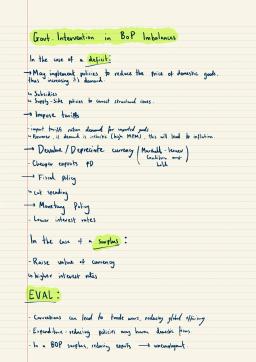 Govt. Intervention in BoP Imbalances
In the case of a deficit:
→ May implement policies to reduce the price of domestic goods,
thus increasing X's demand.
↳ Subsidies
↳ Supply-Side policies to correct structural issues.
→ Impose tariffs
- import tariffs reduce demand for imported goods
- However, if demand is inelastic (high MPM), this will lead to inflation
→ Devalue / Depreciate currency (Marshall-Lerner Condition must hold
- Cheaper exports PD
→ Fiscal policy
↳ cut spending
→ Monetary Policy
- Lower interest rates
In the case of a surplus:
- Raise value of currency
↳ higher interest rates
EVAL:
- Conventions can lead to trade wars, reducing global efficiency
- Expenditure-reducing policies may harm domestic firms
- In a BOP surplus, reducing exports → unemployment.